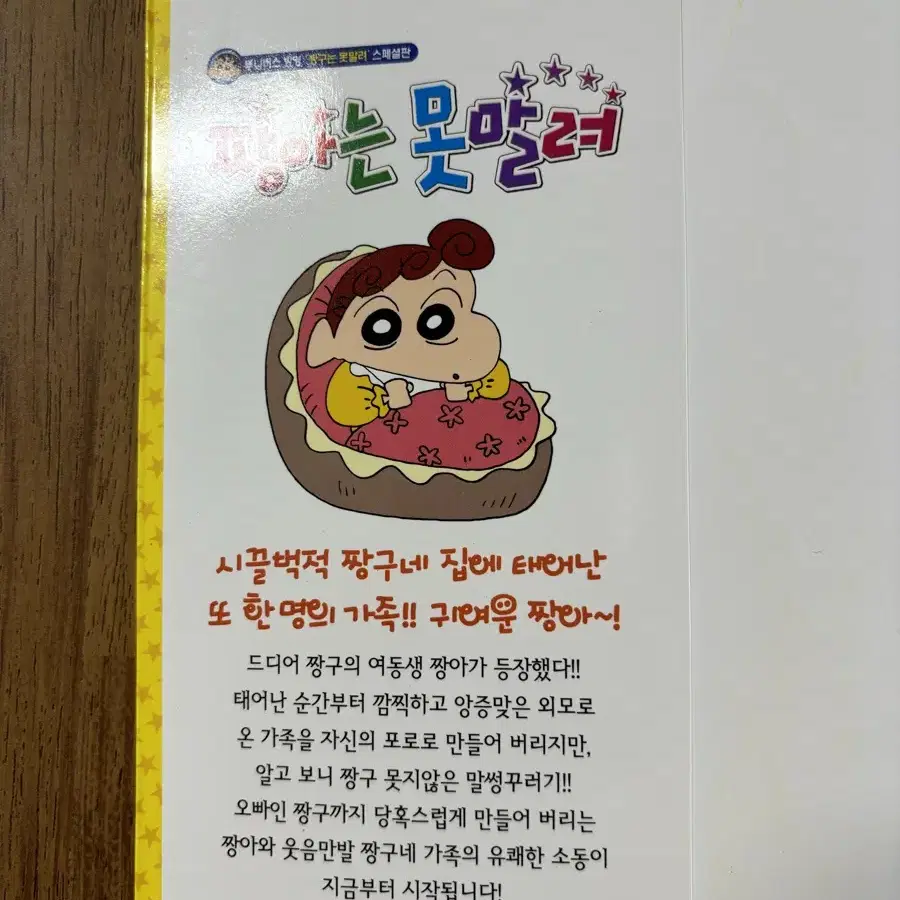 '짱구는 못말려' 스페셜판
짱아는 못말려
시끌벅적 짱구네 집에 태어난
또 한 명의 가족!! 귀여운 짱아~!
드디어 짱구의 여동생 짱아가 등장했다!!
태어난 순간부터 깜찍하고 앙증맞은 외모로
온 가족을 자신의 포로로 만들어 버리지만,
알고 보니 짱구 못지않은 말썽꾸러기!!
오빠인 짱구까지 당혹스럽게 만들어 버리는
짱아와 웃음만발 짱구네 가족의 유쾌한 소동이
지금부터 시작됩니다!